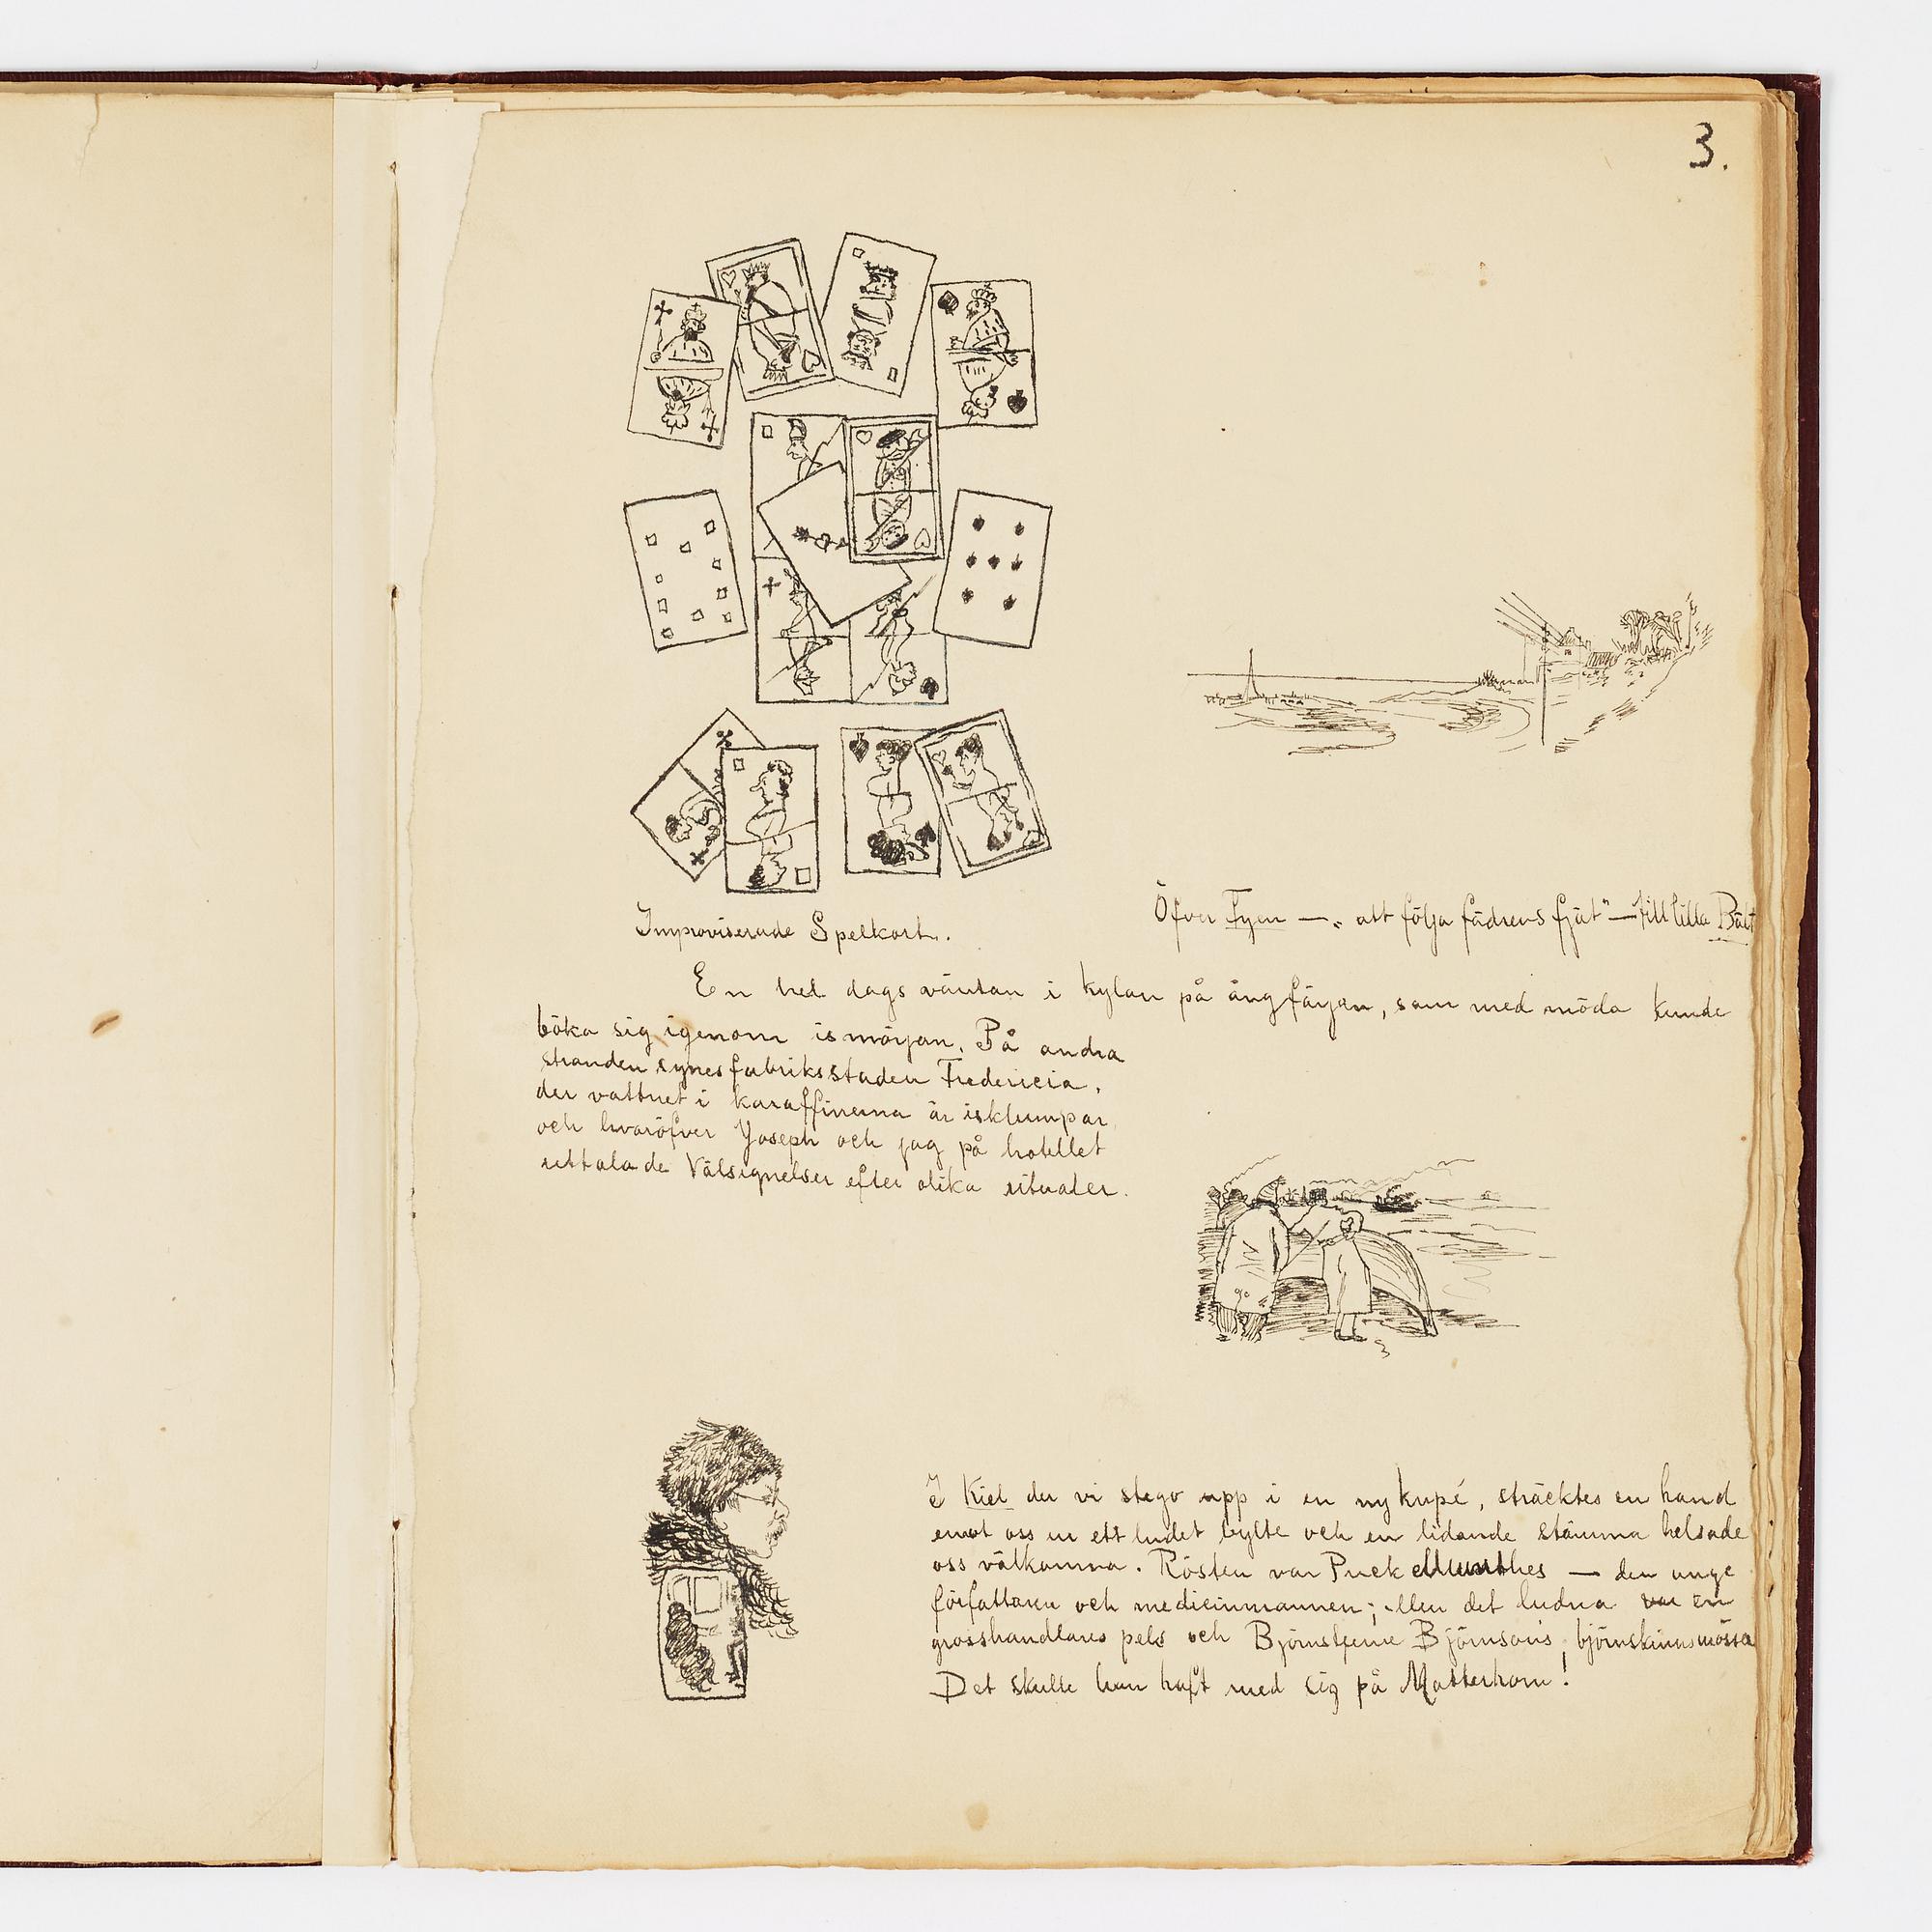 3.
Improviserade Spelkort.
Öfver Fyen — „att följa fädrens fjät" — till lilla Bält
En hel dags väntan i kylan på ångfärjan, som med möda kunde
böka sig igenom ismörjan. På andra
stranden synes fabriksstaden Fredericia,
der vattnet i karaffinerna är isklumpar
och hvaröfver Joseph och jag på hotellet
uttalade Välsignelser efter olika ritualer.
I Kiel der vi stego upp i en ny kupé, sträcktes en hand
emot oss ur ett ludet bylte och en lidande stämma helsade
oss välkomna. Rösten var Puck Munthes — den unge
författaren och medicinmannen; Men det ludna var en
grosshandlares pels och Björnstjerne Björnsons björnskinnsmössa
Det skulle han haft med sig på Matterhorn!